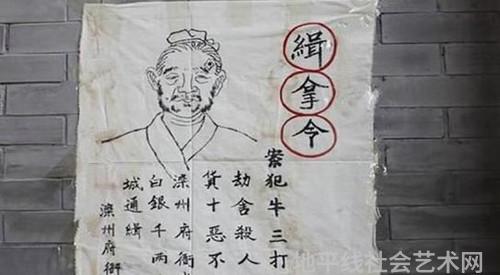 緝拿令
案犯牛三打
劫舍殺人
貨十惡不
滦州府衙
白銀千两
城通緝
滦州府衙
地平线社会艺术网